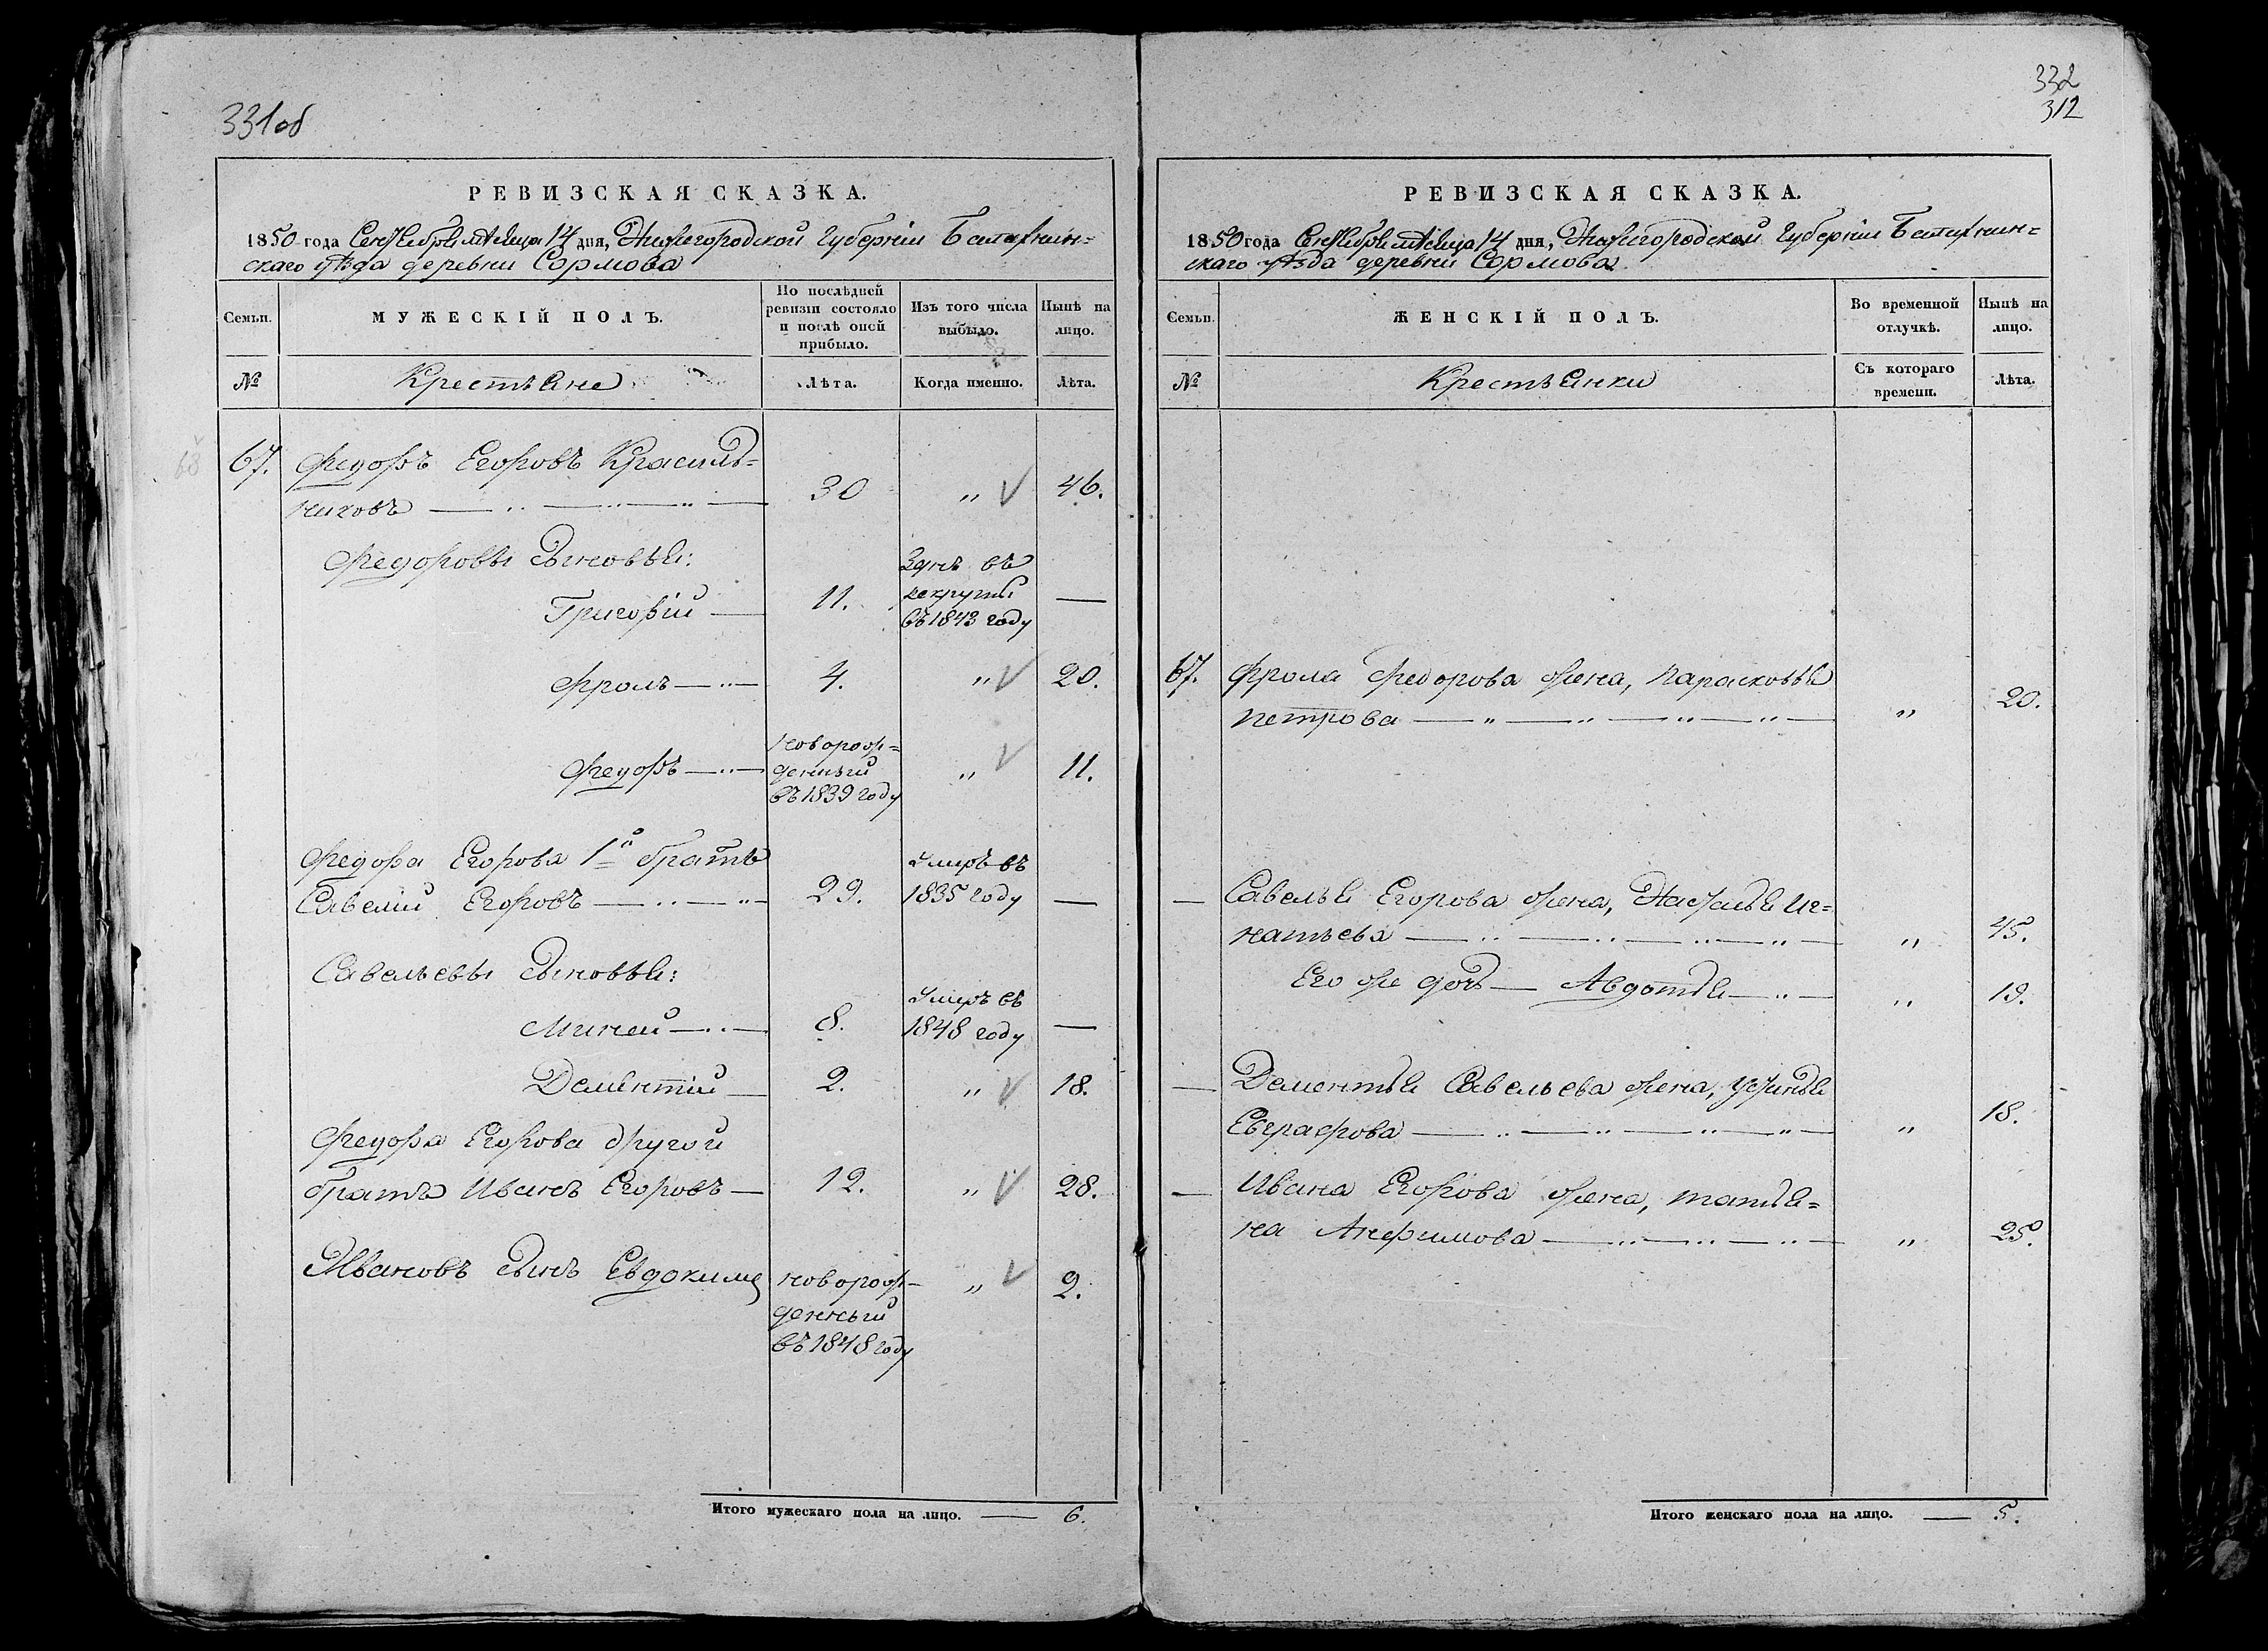 331об
РЕВИЗСКАЯ СКАЗКА.
1850 года Сентября мѣсяца 14 дня, Нижегородской Губерніи Балахнин=
скаго уѣзда деревни Сормова
Семьи.
МУЖЕСКІЙ ПОЛЪ.
По послѣдней
ревизіи состояло
и послѣ оной
прибыло.
Изъ того числа
выбыло.
Нынѣ на
лицо.
№
Крестьяне
Лѣта.
Когда именно.
Лѣта.
67. Федоръ Егоровъ Красиль=
никовъ — 30 „ 46.
Федоровы сыновья:
Григорій — 11. Зднъ въ рекруты въ 1843 году —
Фролъ — 4. „ 20.
Федоръ — новорож=
денный
въ 1839 году „ 11.
Федора Егорова 1й братъ
Савелій Егоровъ — 29. Умеръ въ 1835 году —
Савельевы сыновья:
Миней — 8. Умеръ въ 1848 году —
Дементій — 2. „ 18.
Федора Егорова другой
братъ Иванъ Егоровъ — 12. „ 28.
Ивановъ сынъ Евдокимъ новорож-
денный
въ 1848 году „ 2.
Итого мужескаго пола на лицо. — 6.
332
312
РЕВИЗСКАЯ СКАЗКА.
1850 года Сентября мѣсяца 14 дня, Нижегородской Губерніи Балахнин=
скаго уѣзда деревни Сормова
Семьи.
ЖЕНСКІЙ ПОЛЪ.
Во временной
отлучкѣ.
Нынѣ на
лицо.
№
Крестьянки
Съ котораго
времени.
Лѣта.
67. Фрола Федорова жена, Парасковья
Петрова — „ 20.
— Савелья Егорова жена, Наталья Иг=
натьева — „ 45.
Его же дочь — Авдотья — „ 19.
— Дементья Савельева жена, Устинья
Евграфова — „ 18.
— Ивана Егорова жена, Татья=
на Анфимова — „ 25.
Итого женскаго пола на лицо. — 5.